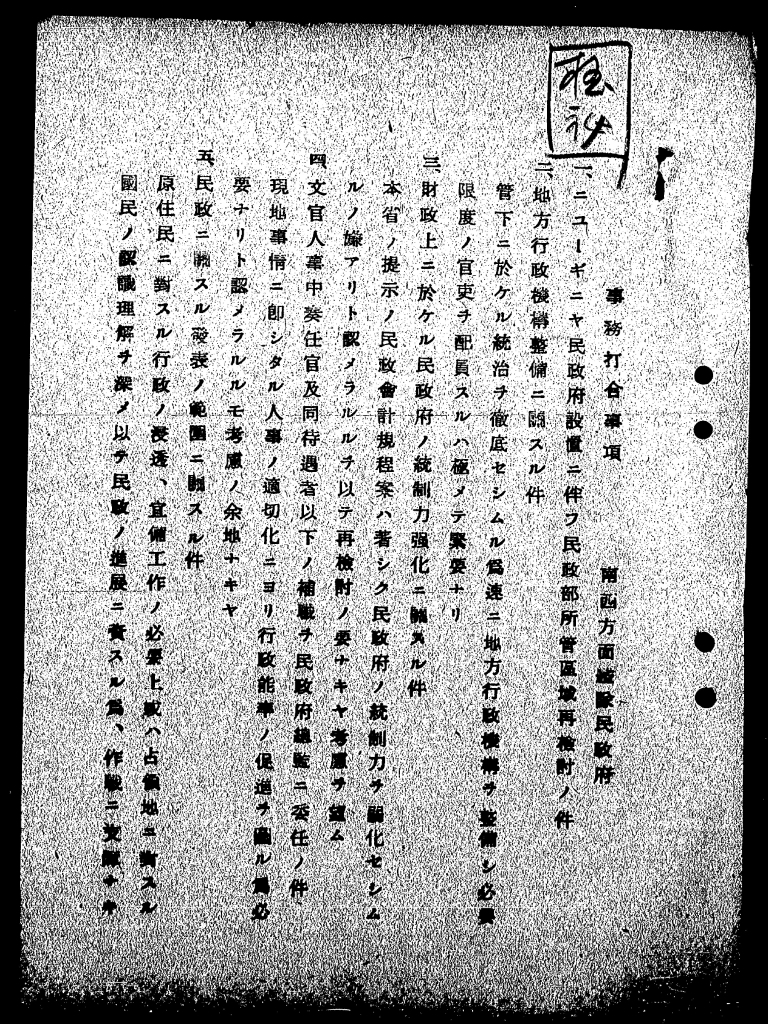 極秘
事務打合事項
南西方面艦隊民政府
一、ニユーギニヤ民政府設置ニ伴フ民政部所管區域再檢討ノ件
二、地方行政機構整備ニ關スル件
管下ニ於ケル統治ヲ徹底セシムル爲速ニ地方行政機構ヲ整備シ必要
限度ノ官吏ヲ配員スルハ極メテ緊要ナリ
三、財政上ニ於ケル民政府ノ統制力强化ニ關スル件
本省ノ提示ノ民政會計規程案ハ著シク民政府ノ統制力ヲ弱化セシム
ルノ嫌アリト認メラルルヲ以テ再檢討ノ要ナキヤ考慮ヲ望ム
四、文官人事中奏任官及同待遇者以下ノ補職ヲ民政府總監ニ委任ノ件
現地事情ニ卽シタル人事ノ適切化ニヨリ行政能率ノ促進ヲ圖ル爲必
要ナリト認メラルルモ考慮ノ余地ナキヤ
五、民政ニ關スル發表ノ範圍ニ關スル件
原住民ニ對スル行政ノ浸透、宣傳工作ノ必要上或ハ占領地ニ對スル
國民ノ認識理解ヲ深メ以テ民政ノ進展ニ資スル爲、作戰ニ支障ナキ